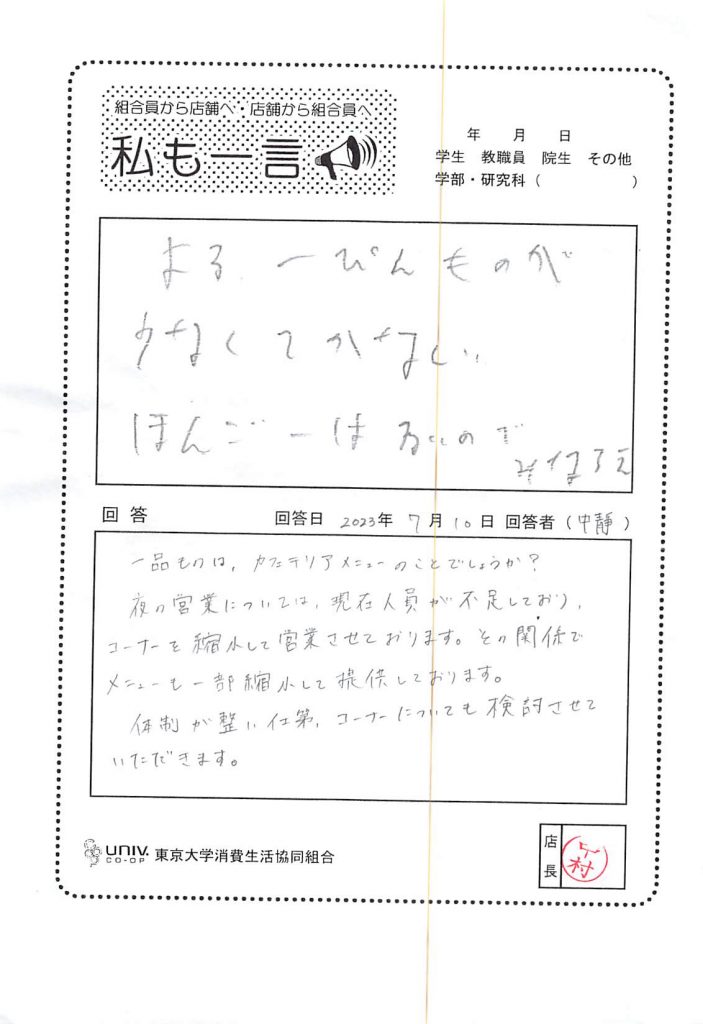 組合員から店舗へ・店舗から組合員へ
私も一言
年 月 日
学生 教職員 院生 その他
学部・研究科（ ）
よる 一ぴんものが
少なくてかなしい
ほんごーはあるので
回答 回答日 2023年 7月 10日 回答者（中静）
一品ものは、カフェテリアメニューのことでしょうか？
夜の営業については、現在人員が不足しており、
コーナーを縮小して営業させております。その関係で
メニューも一部縮小して提供しております。
体制が整い仕第、コーナーについても検討させて
いただきます。
UNIV. CO-OP 東京大学消費生活協同組合
店長
村